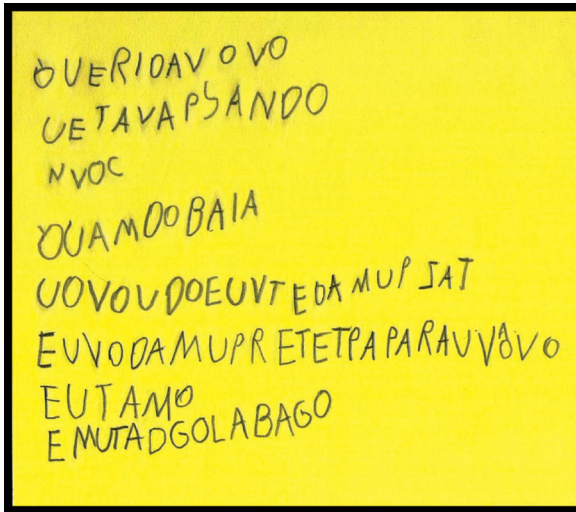 QUERIDAV O VO
UETAVAPSANDO
NVOC
QUAMDOBAIA
UOVOUDOEUVTEDAMUPSAT
EUVODAMUPRETETPAPARAUVÂVO
EUTAMO
EMUTADGOLABAGO